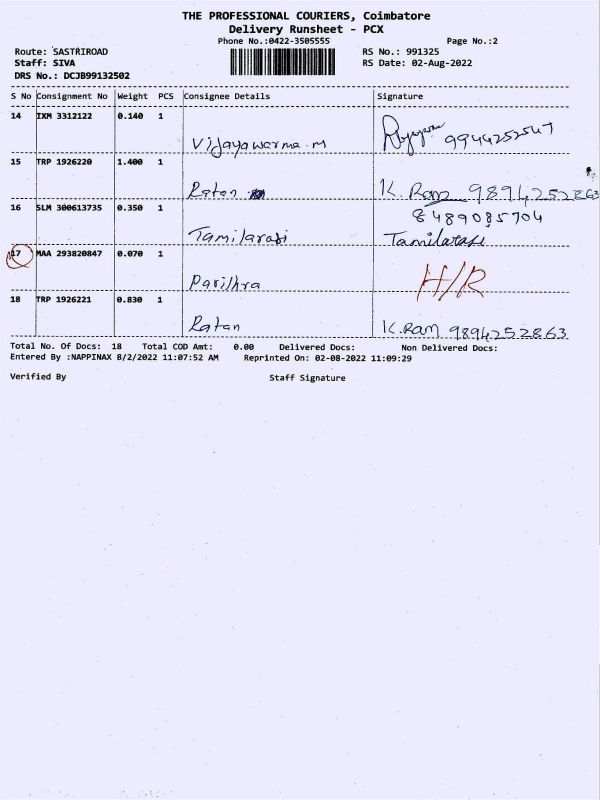 THE PROFESSIONAL COURIERS, Coimbatore
Delivery Runsheet - PCX
Phone No.:0422-3505555 Page No.:2
Route: SASTRIROAD RS No.: 991325
Staff: SIVA RS Date: 02-Aug-2022
DRS No.: DCJB99132502
S No Consignment No Weight PCS Consignee Details Signature
14 IXM 3312122 0.140 1
Vijayawarma.M 9944252547
15 TRP 1926220 1.400 1
Ratan K. Ram 9894252863
16 SLM 300613735 0.350 1 8489085704
Tamilarasi Tamilarasi
17 MAA 293820847 0.070 1 H/R
18 TRP 1926221 0.830 1
Ratan K.Ram 9894252863
Total No. Of Docs: 18 Total COD Amt: 0.00 Delivered Docs: Non Delivered Docs:
Entered By :NAPPINAX 8/2/2022 11:07:52 AM Reprinted On: 02-08-2022 11:09:29
Verified By Staff Signature